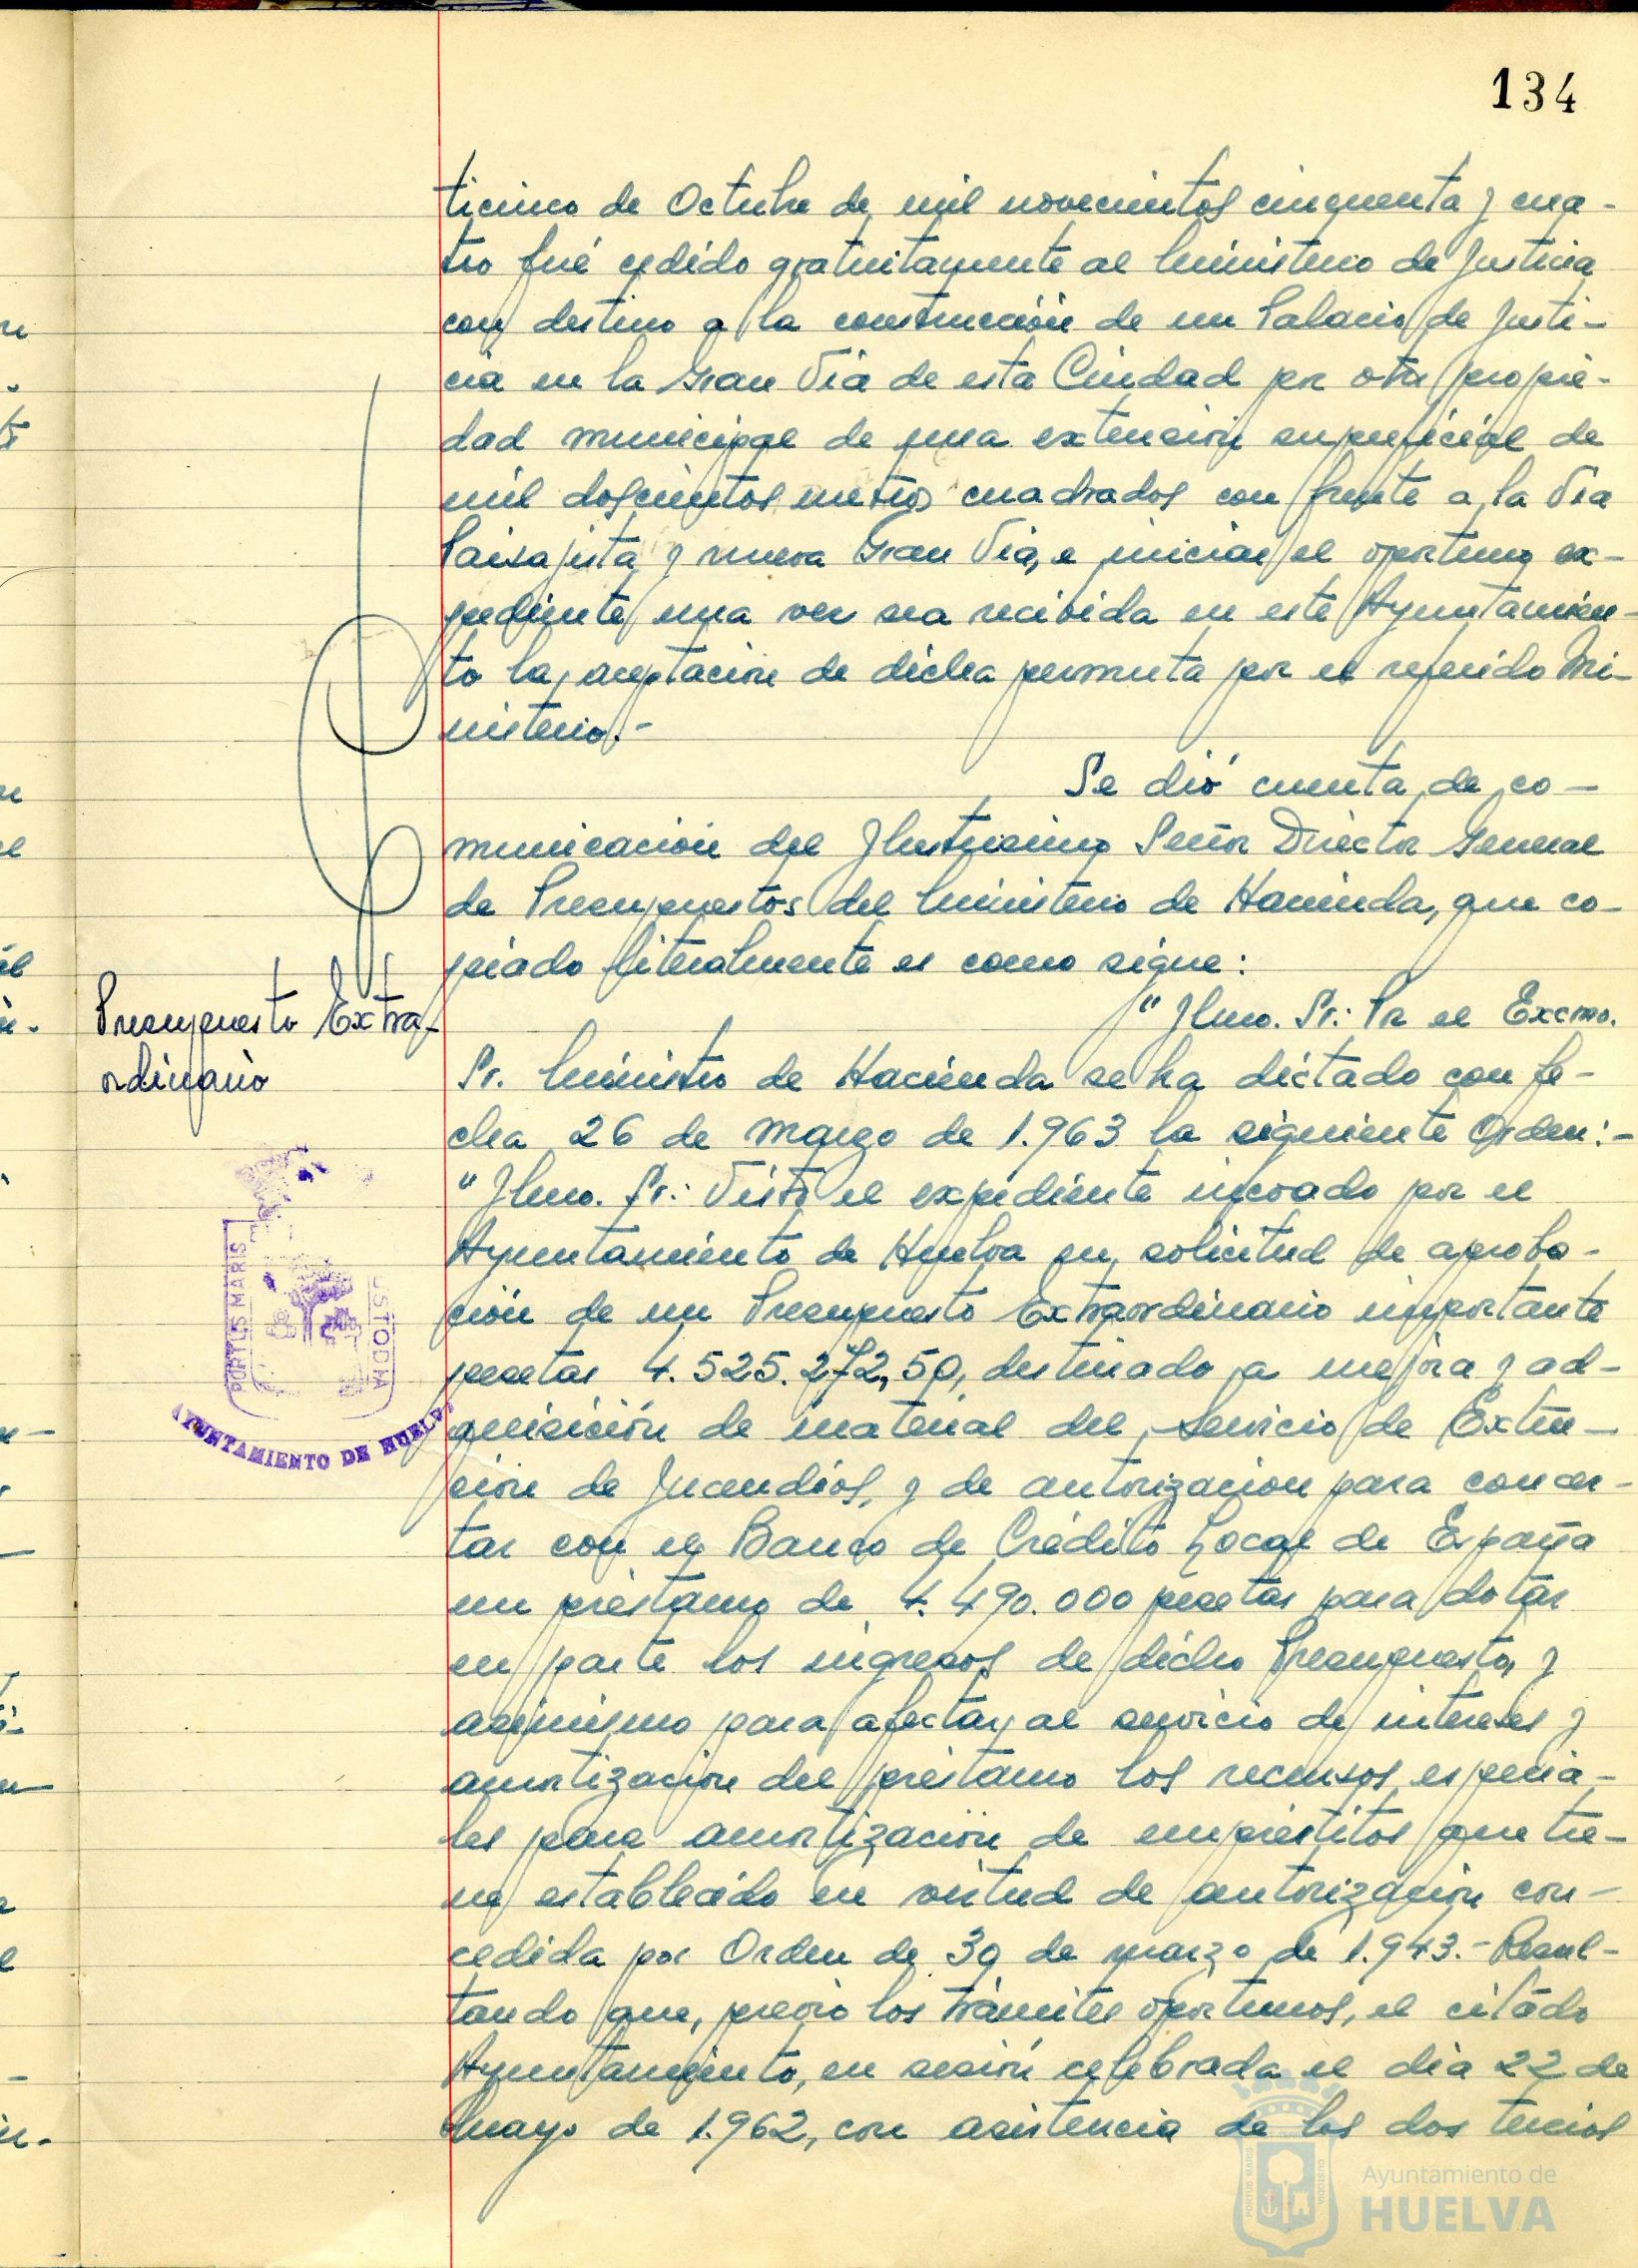 134
ticinco de Octubre de mil novecientos cincuenta y cua-
tro fué cedido gratuitamente al Ministerio de Justicia
con destino a la construcción de un Palacio de Justi-
cia en la Gran Via de esta Ciudad por otra propie-
dad municipal de una extensión superficial de
mil doscientos metros cuadrados con frente a la Via
Paisajista y nueva Gran Via, e iniciar el oportuno ex-
pediente una vez sea recibida en este Ayuntamien-
to la aceptación de dicha permuta por el referido Mi-
nisterio.-
Se dió cuenta de co-
municación del Ilustrisimo Señor Director General
de Presupuestos del Ministerio de Hacienda, que co-
piado literalmente es como sigue:
Presupuesto Extra-
ordinario
"Ilmo. Sr.: Por el Excmo.
Sr. Ministro de Hacienda se ha dictado con fe-
cha 26 de marzo de 1.963 la siguiente Orden:-
"Ilmo. Sr.: Visto el expediente incoado por el
Ayuntamiento de Huelva en solicitud de aproba-
ción de un Presupuesto Extraordinario importante
pesetas 4.525.272,50, destinado a mejora y ad-
quisición de material del Servicio de Extin-
ción de Incendios, y de autorización para concer-
tar con el Banco de Crédito Local de España
un préstamo de 4.490.000 pesetas para dotar
en parte los ingresos de dicho Presupuesto, y
asimismo para afectar al servicio de intereses y
amortización del préstamo los recursos especia-
les para amortización de empréstitos que tie-
ne establecido en virtud de autorización con-
cedida por Orden de 30 de marzo de 1.943.- Resul-
tando que, previo los trámites oportunos, el citado
Ayuntamiento, en sesión celebrada el dia 22 de
Mayo de 1.962, con asistencia de los dos tercios
PORTUS MARIS
CUSTODIA
AYUNTAMIENTO DE HUELVA
Ayuntamiento de
HUELVA